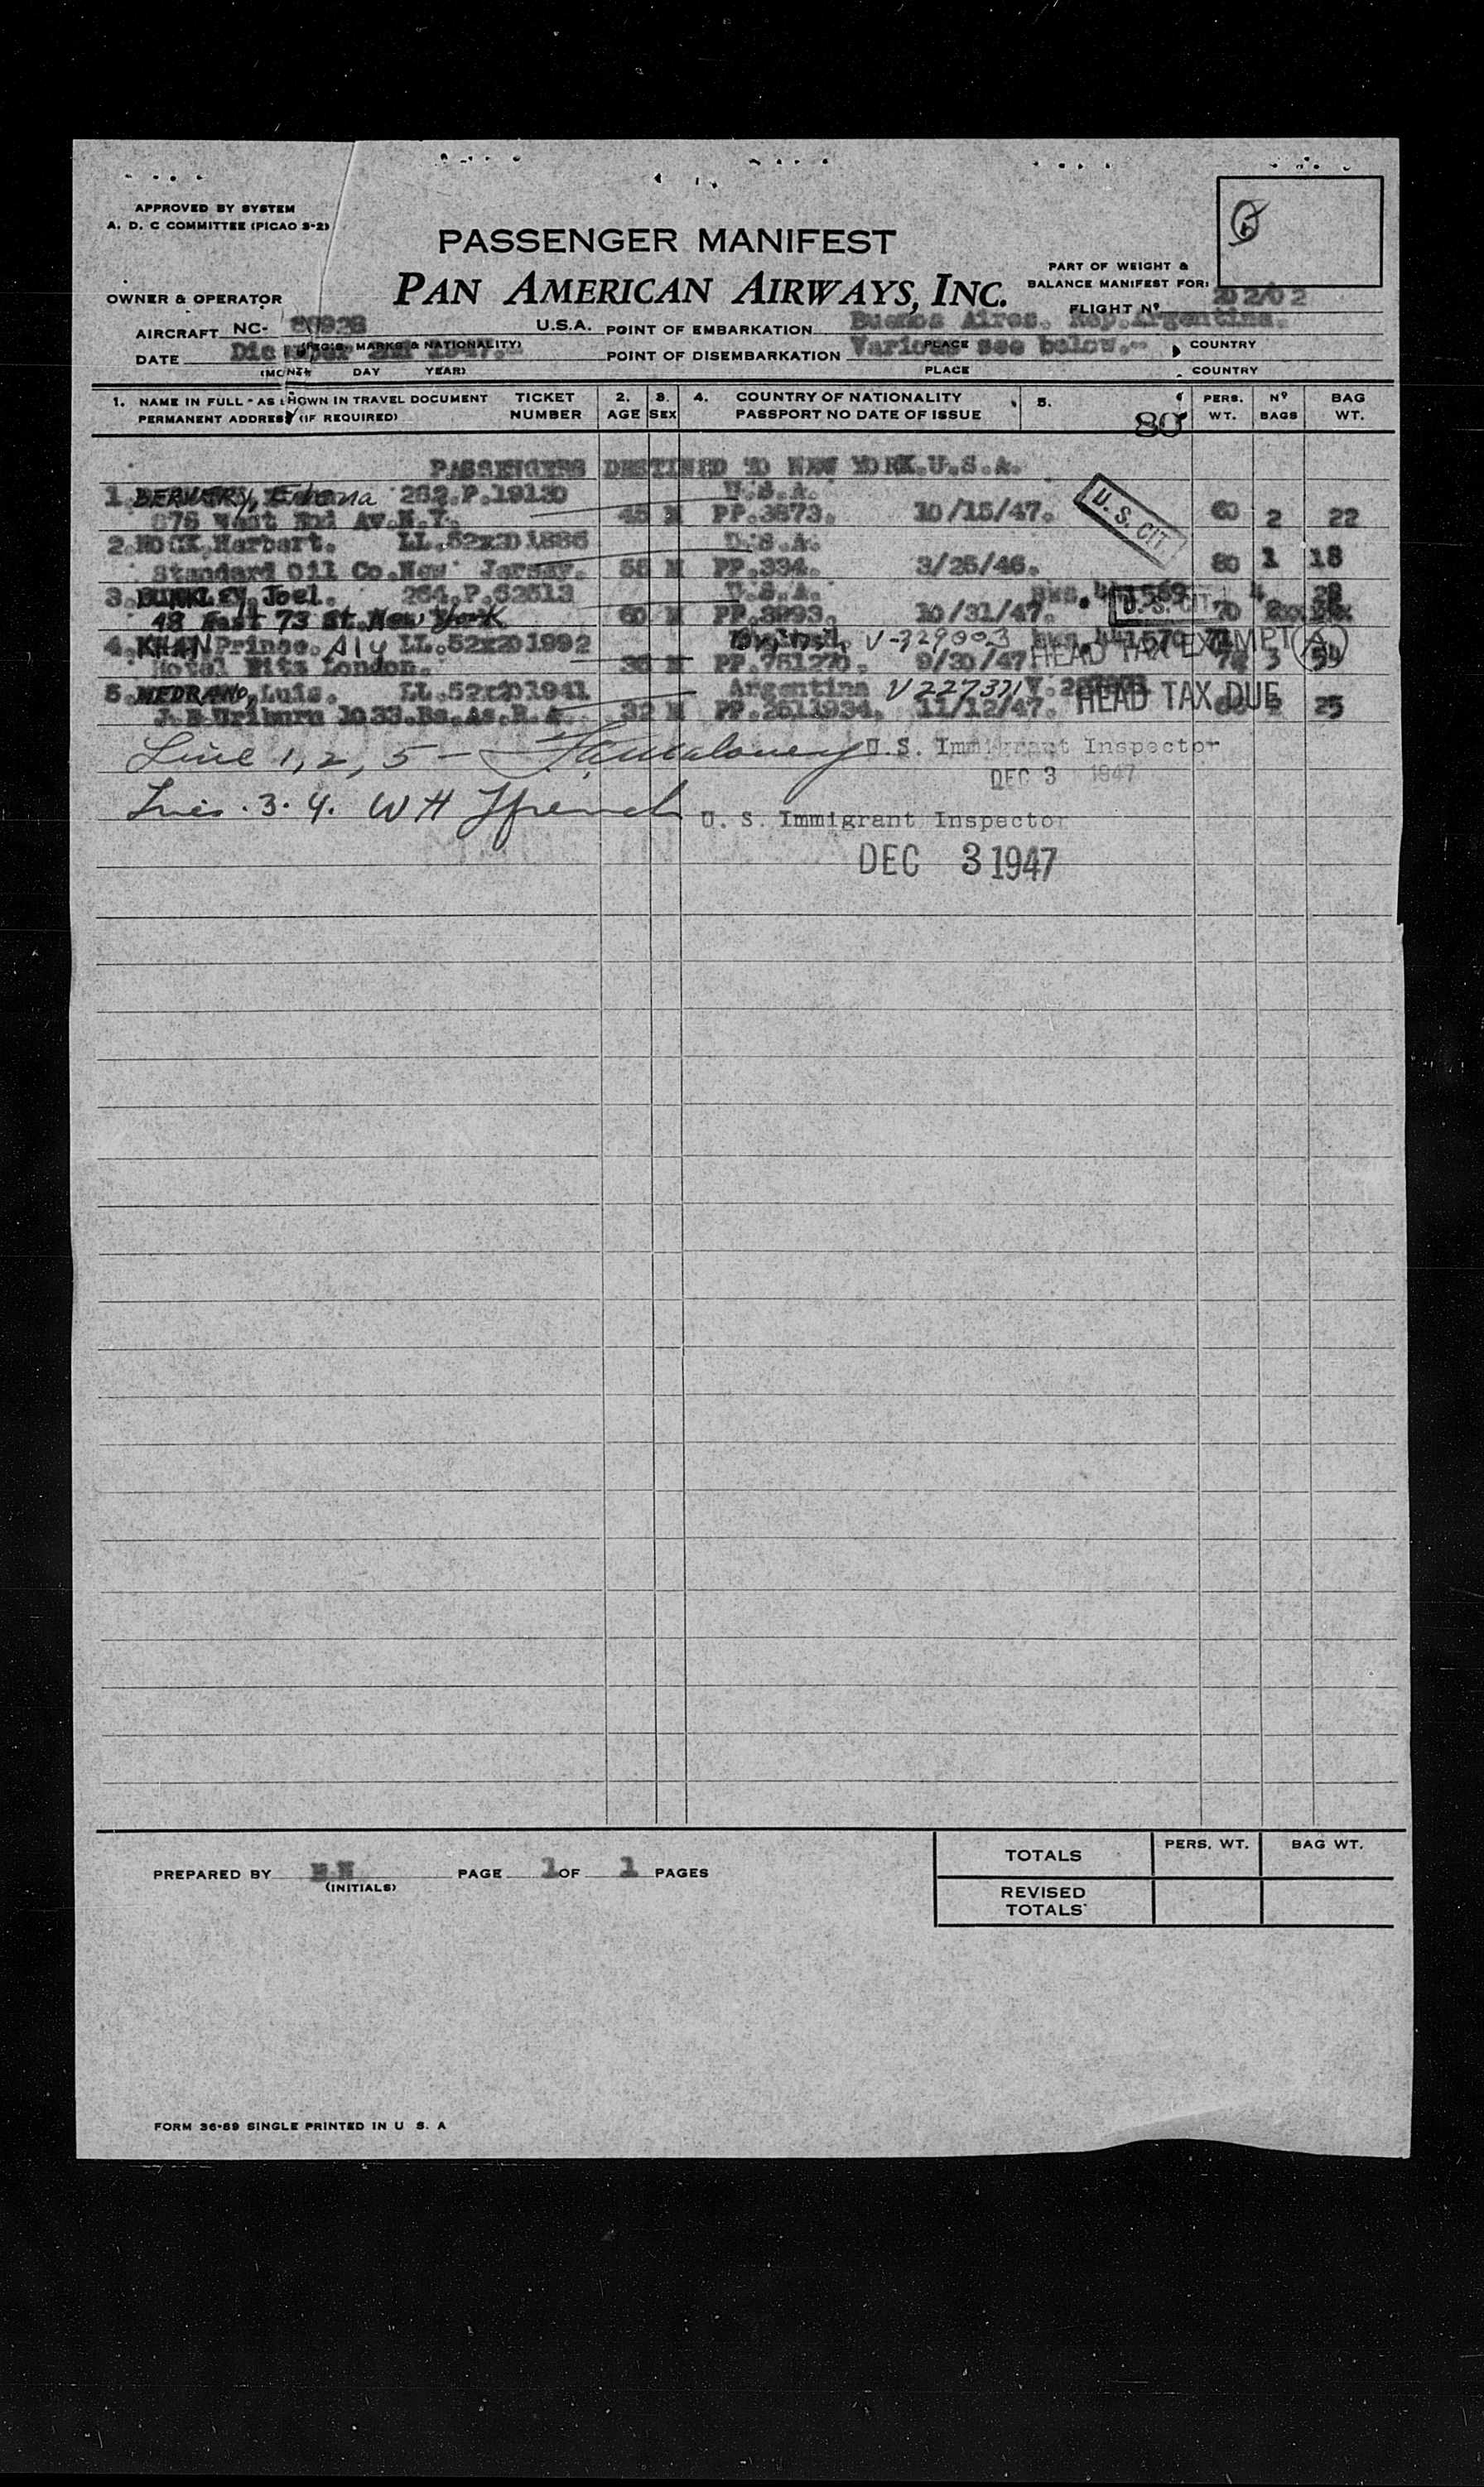 APPROVED BY SYSTEM
A. D. C COMMITTEE (PICAO S-2)
PASSENGER MANIFEST
PAN AMERICAN AIRWAYS, INC.
PART OF WEIGHT &
BALANCE MANIFEST FOR:
OWNER & OPERATOR
FLIGHT Nº 202/02
AIRCRAFT NC- U.S.A. POINT OF EMBARKATION Buenos Aires. Rep.Argentina.
(REGIS. MARKS & NATIONALITY) PLACE COUNTRY
DATE 2nd 1947. POINT OF DISEMBARKATION Various see below.
(MONTH DAY YEAR) PLACE COUNTRY
1. NAME IN FULL - AS SHOWN IN TRAVEL DOCUMENT TICKET 2. 3. 4. COUNTRY OF NATIONALITY 5. PERS. Nº BAG
PERMANENT ADDRESS (IF REQUIRED) NUMBER AGE SEX PASSPORT NO DATE OF ISSUE 80 WT. BAGS WT.
PASSENGERS DESTINED TO NEW YORK.U.S.A.
1. 262.P.19130 U.S.A.
675 West End Av.N.Y. 45 M PP.3873. 10/15/47. U. S. CIT 60 2 22
2.HOCK,Herbert. LL.52x201886 U.S.A.
Standard Oil Co.New Jersey. 56 M PP.334. 3/25/46. 80 1 18
3. Joel. 264.P.62613 U.S.A. 4 28
48 East 73 St.New York 60 M PP.3293. 10/31/47. U.S. CIT 70
4.KHAN Prince. Aly LL.52x201992 V-329003
Hotel Ritz London. 36 M PP.751270. 9/30/47 HEAD TAX EXEMPT 3 54
5.MEDRANO, Luis. LL.52x201941 Argentina V227371
J.E.Uriburu 1033.Bs.As.R.A. 32 M PP.2611934. 11/12/47. HEAD TAX DUE 25
Line 1, 2, 5 - U.S. Immigrant Inspector
DEC 3 1947
Lines 3. 4. W H French U. S. Immigrant Inspector
DEC 3 1947
PREPARED BY PAGE 1 OF 1 PAGES
(INITIALS)
TOTALS PERS. WT. BAG WT.
REVISED
TOTALS
FORM 36-89 SINGLE PRINTED IN U S. A